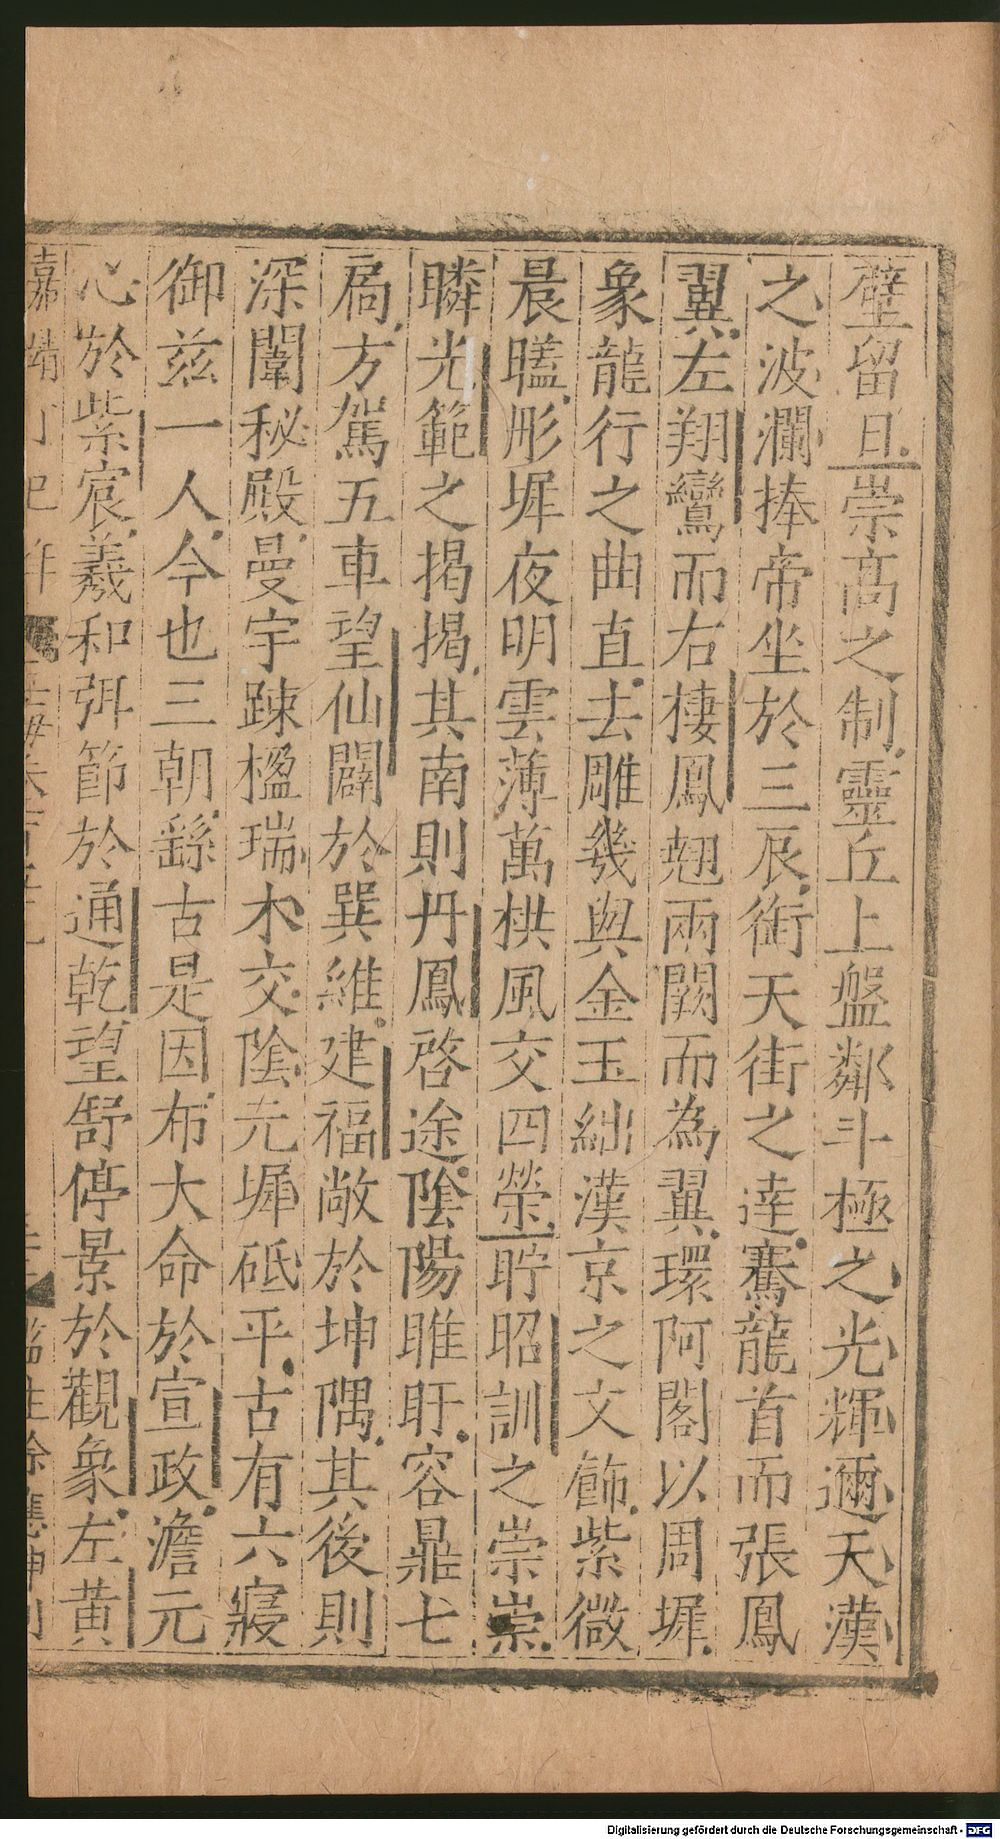 璧留日崇高之制靈丘上盤鄰斗極之光輝邇天漢
之波瀾捧帝坐於三辰銜天街之逵騫龍首而張鳳
翼左翔鸞而右棲鳳翹兩闕而為翼環阿閣以周墀
象龍行之曲直去雕幾與金玉絀漢京之文飾紫微
晨曦彤墀夜明雲薄萬栱風交四榮貯昭訓之崇崇
瞵光範之揭揭其南則丹鳳啓途陰陽睢盱容鼎七
扃方駕五車望仙闢於巽維建福敞於坤隅其後則
深闈秘殿曼宇踈楹瑞木交陰玄墀砥平古有六寢
御兹一人今也三朝繇古是因布大命於宣政澹元
心於紫宸羲和弭節於通乾望舒停景於觀象左黄
嘉靖丁巳年
監生徐應坤刊
Digitalisierung gefördert durch die Deutsche Forschungsgemeinschaft - DFG